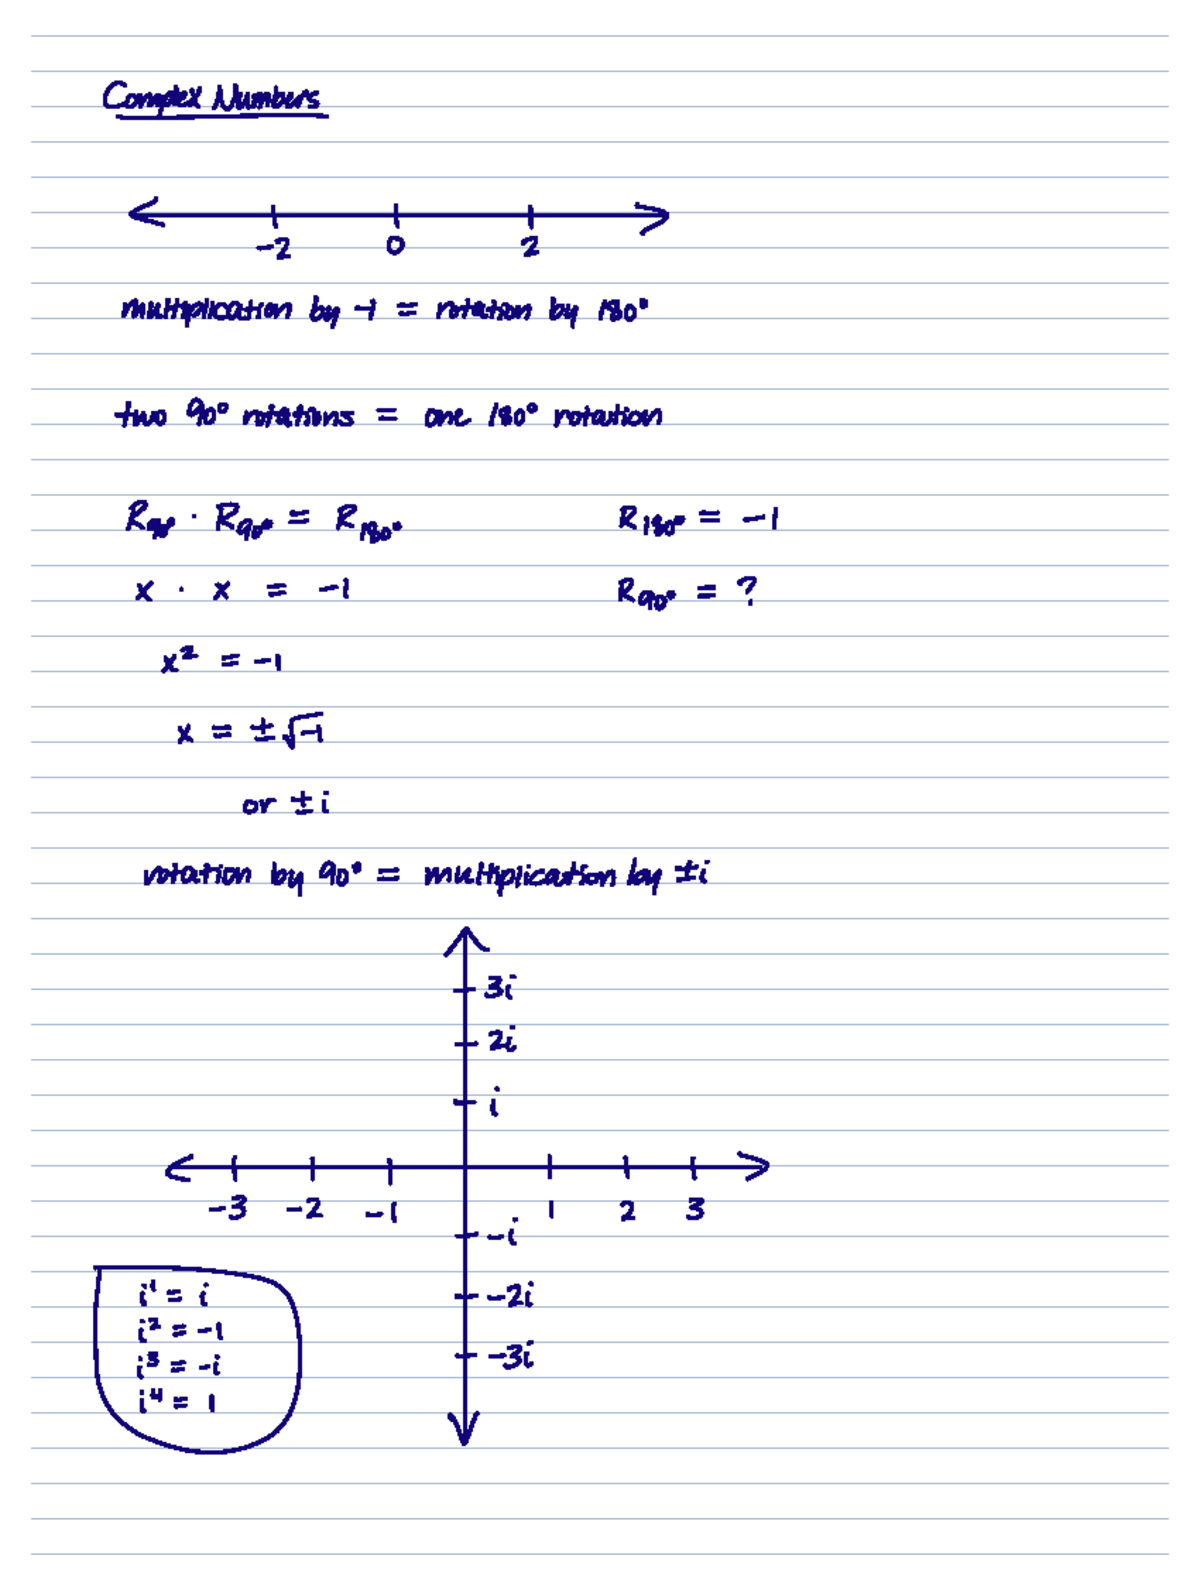 Complex Numbers
-2 0 2
multiplication by -1 = rotation by 180°
two 90° rotations = one 180° rotation
R₉₀° · R₉₀° = R₁₈₀° R₁₈₀° = -1
x · x = -1 R₉₀° = ?
x² = -1
x = ±√-1
or ±i
rotation by 90° = multiplication by ±i
3i
2i
i
-3 -2 -1 1 2 3
-i
-2i
-3i
i¹ = i
i² = -1
i³ = -i
i⁴ = 1